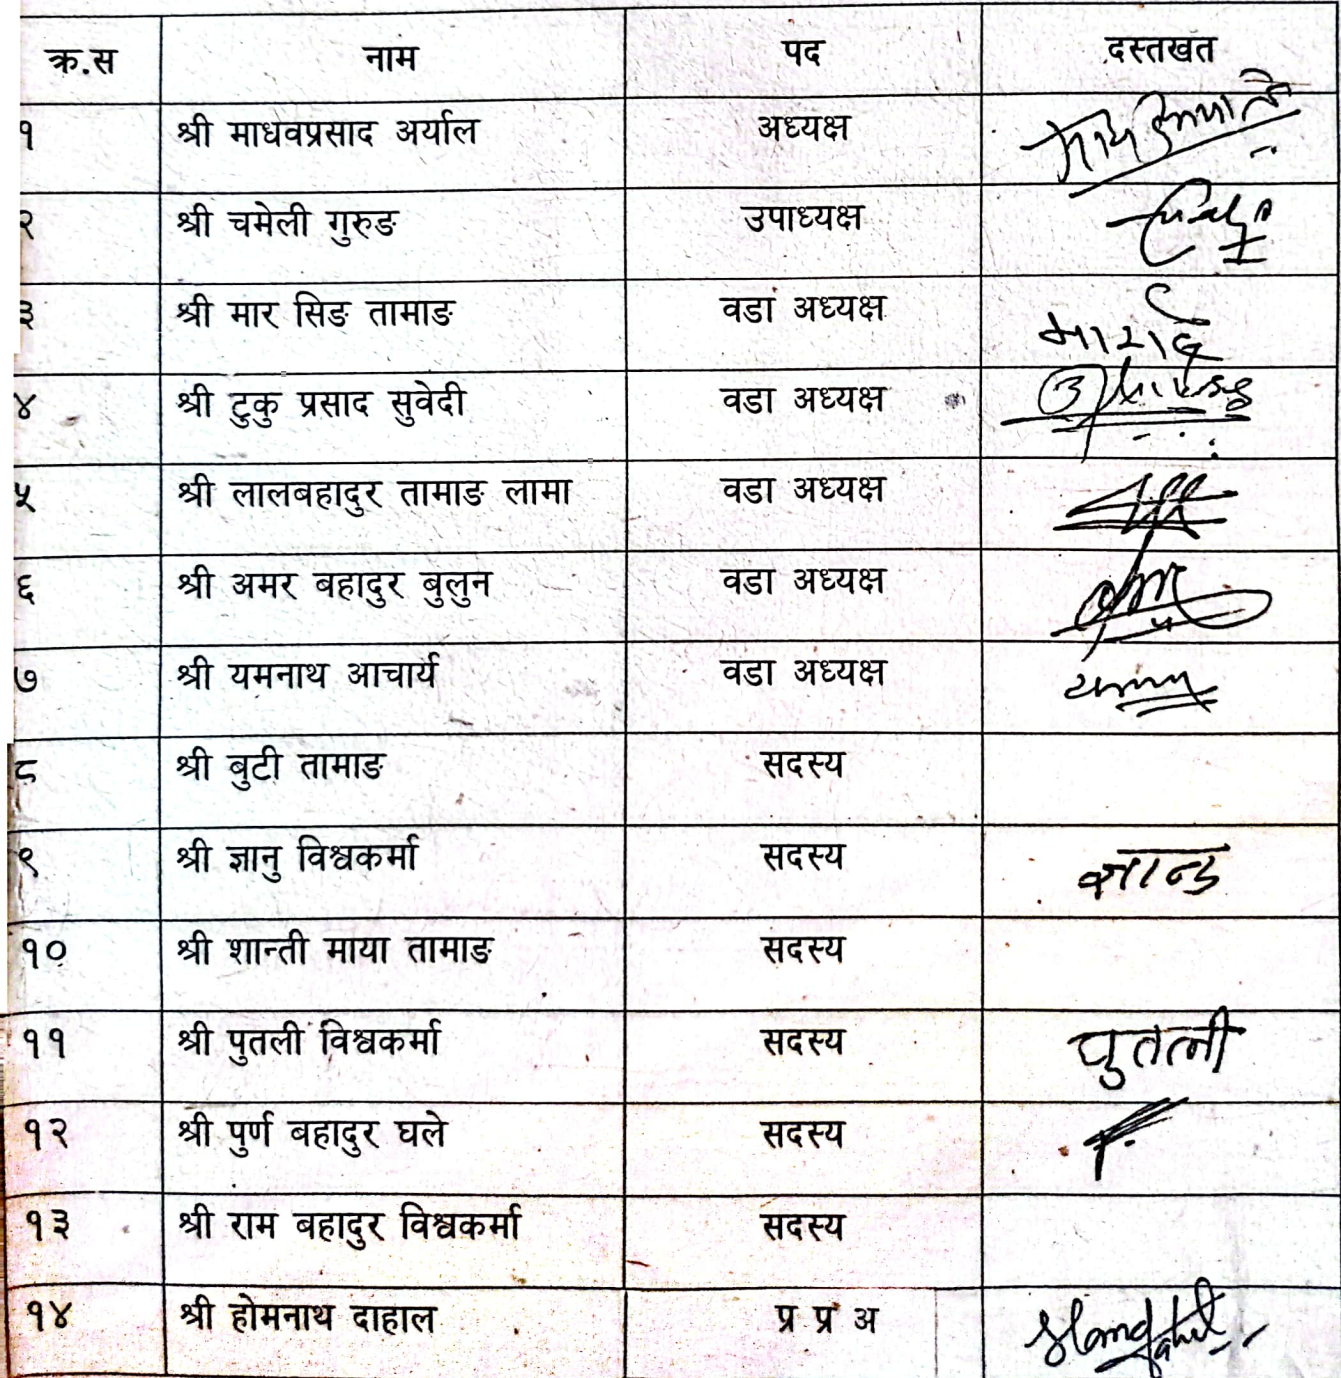 क्र.स नाम पद दस्तखत
१ श्री माधवप्रसाद अर्याल अध्यक्ष
२ श्री चमेली गुरुङ उपाध्यक्ष
३ श्री मार सिङ तामाङ वडा अध्यक्ष
४ श्री टुकु प्रसाद सुवेदी वडा अध्यक्ष
५ श्री लालबहादुर तामाङ लामा वडा अध्यक्ष
६ श्री अमर बहादुर बुलुन वडा अध्यक्ष
७ श्री यमनाथ आचार्य वडा अध्यक्ष
८ श्री बुटी तामाङ सदस्य
९ श्री ज्ञानु विश्वकर्मा सदस्य
१० श्री शान्ती माया तामाङ सदस्य
११ श्री पुतली विश्वकर्मा सदस्य पुतली
१२ श्री पुर्ण बहादुर घले सदस्य
१३ श्री राम बहादुर विश्वकर्मा सदस्य
१४ श्री होमनाथ दाहाल प्र प्र अ